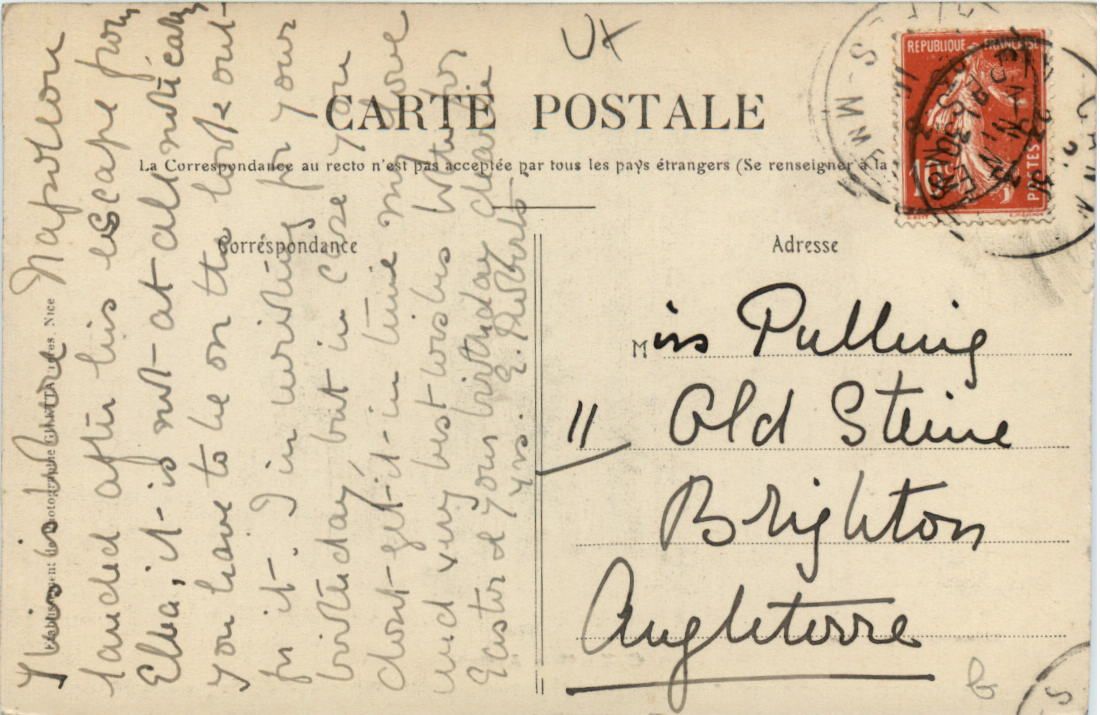 CARTE POSTALE
La Correspondance au recto n'est pas acceptée par tous les pays étrangers (Se renseigner à la
Correspondance
Adresse
REPUBLIQUE FRANÇAISE
POSTES
This is where Napoleon
landed after his escape from
Elba; it is not at all noticeable
you have to be on the look out
for it. I'm writing for your
birthday, but in case you
don't get it in time my love
and very best wishes both for
Easter & your birthday dearie
Yrs. E. Roberts
Miss Pulling
11 Old Steine
Brighton
Angleterre
Nice